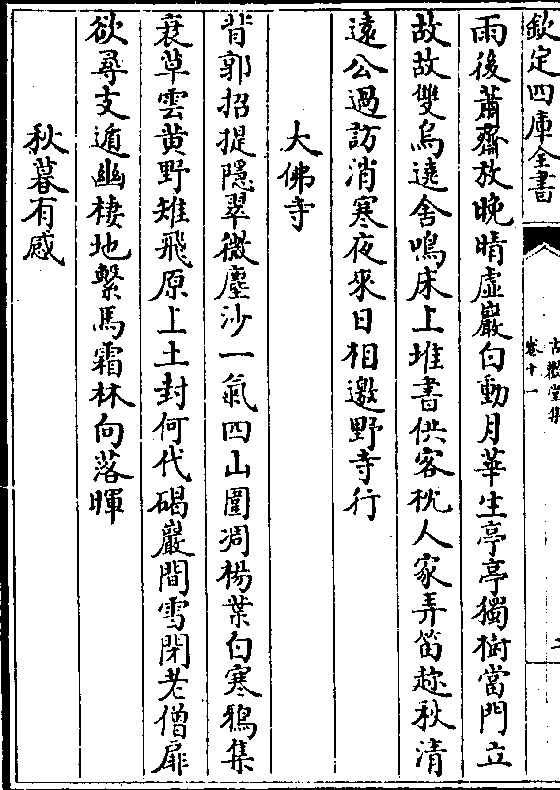 欽定四庫全書
古歡堂集
卷十一
雨後蕭齋放晚晴虛巖白動月華生亭亭獨樹當門立
故故雙烏遶舍鳴床上堆書供客枕人家弄笛趂秋清
遠公過訪消寒夜來日相邀野寺行
大佛寺
背郭招提隱翠微塵沙一氣四山圍凋楊葉白寒鴉集
衰草雲黄野雉飛原上土封何代碣巖間雪閉老僧扉
欲尋支遁幽棲地繫馬霜林向落暉
秋暮有感